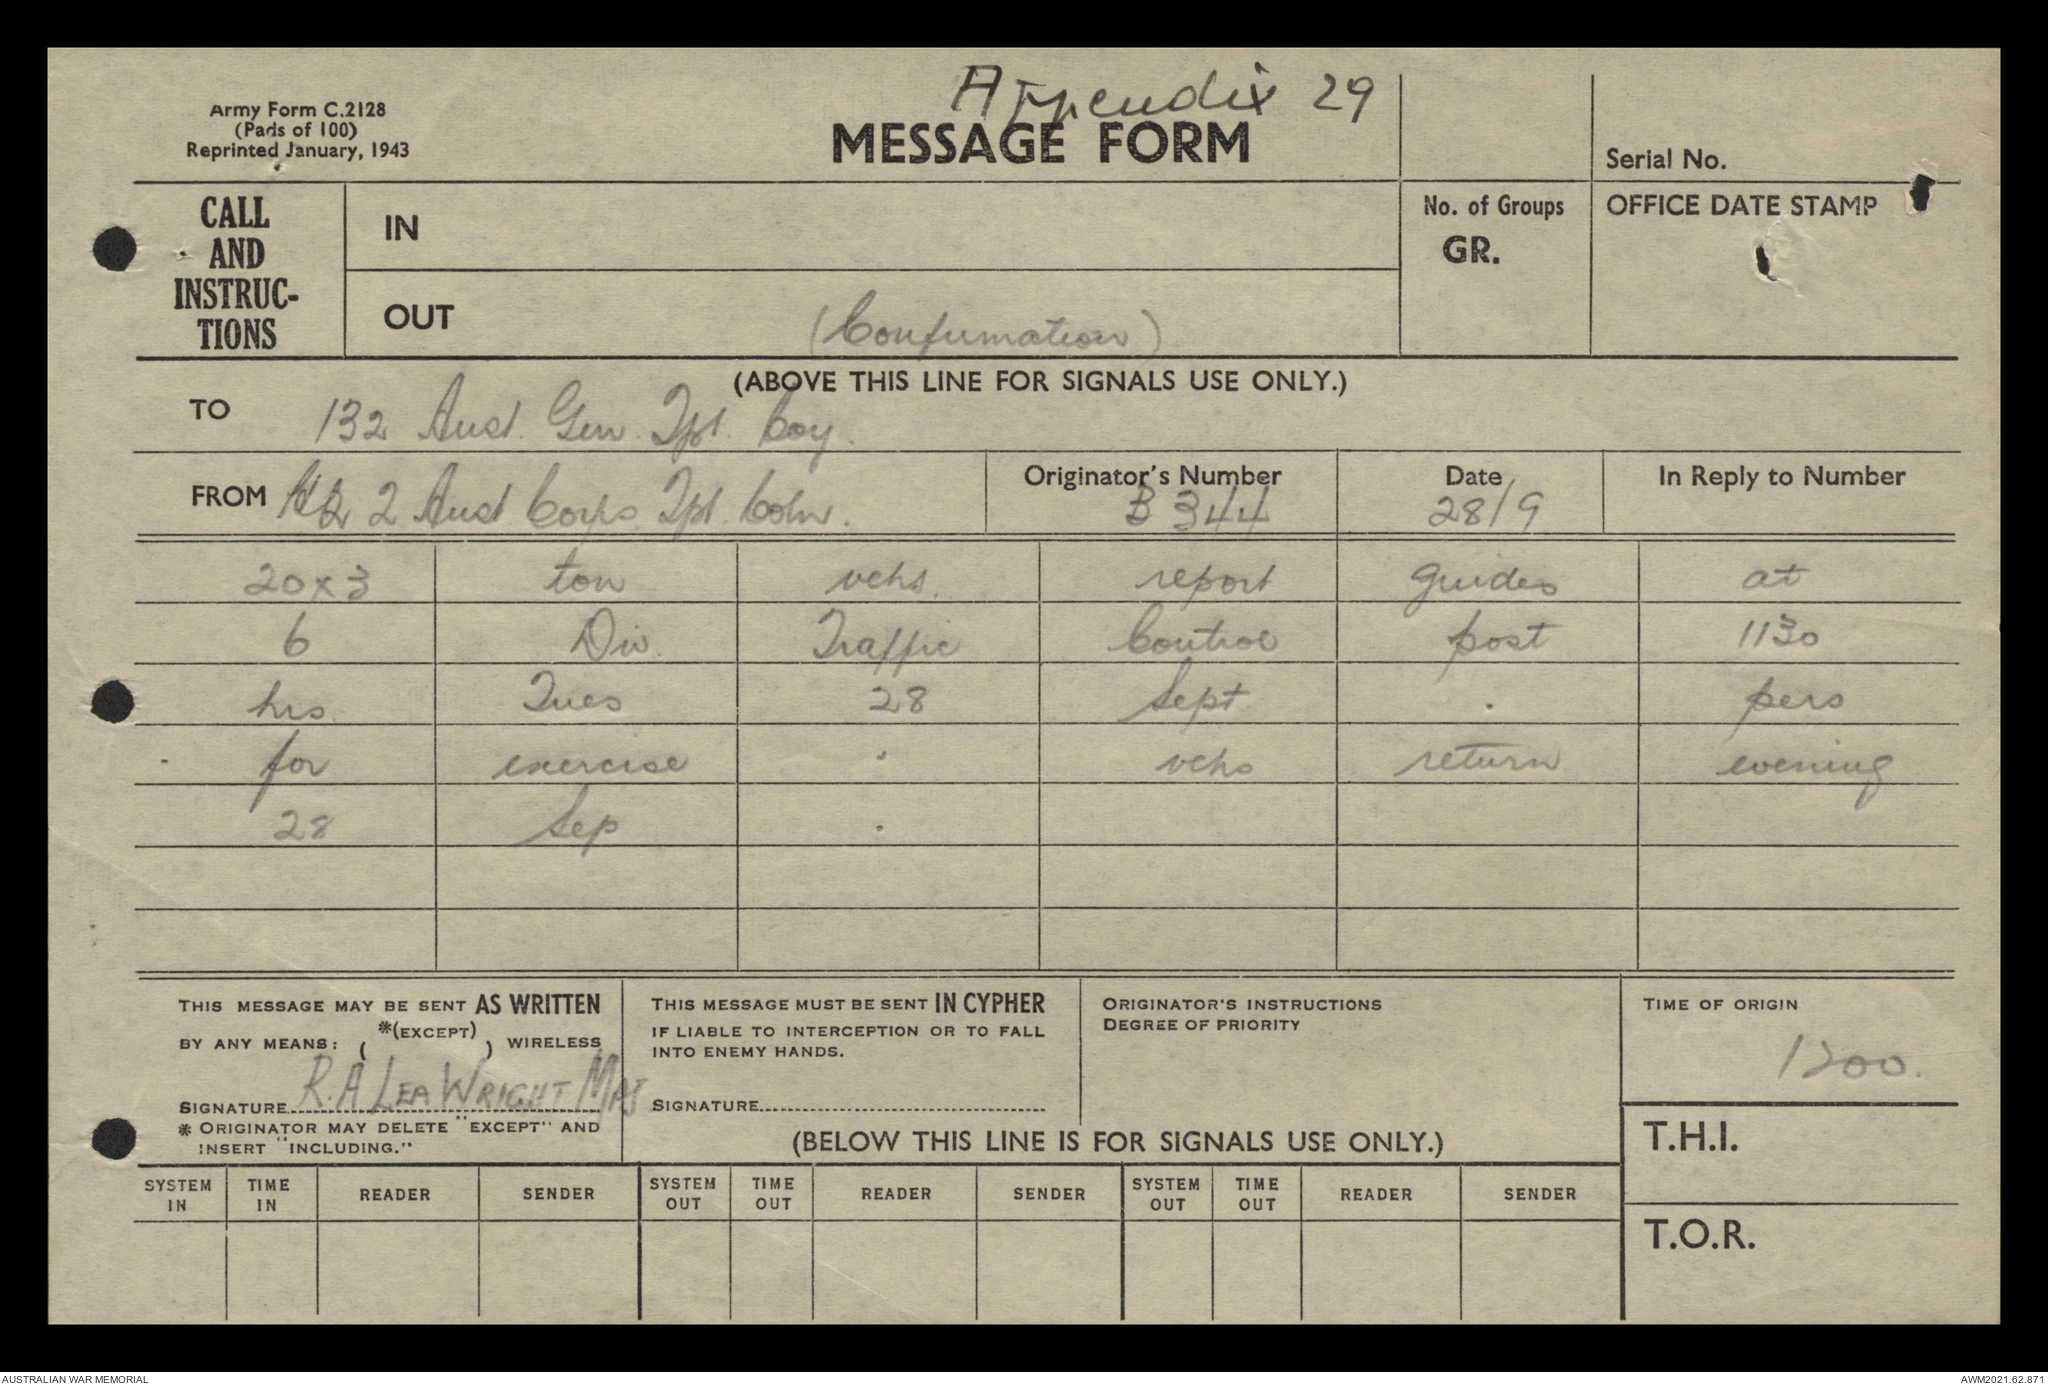 Appendix 29
Army Form C.2128
(Pads of 100)
Reprinted January, 1943
MESSAGE FORM
Serial No.
CALL
AND
INSTRUC-
TIONS
IN
No. of Groups
GR.
OFFICE DATE STAMP
OUT (Confirmation)
(ABOVE THIS LINE FOR SIGNALS USE ONLY.)
TO 132 Aust. Gen. Tpt. Coy.
FROM HQ 2 Aust Corps Tpt. Coln.
Originator's Number
B 344
Date
28/9
In Reply to Number
20x3 ton vehs. report guides at
6 Div. Traffic Control post 1130
hrs Tues 28 Sept . pers
for exercise . vehs return evening
28 Sep .
THIS MESSAGE MAY BE SENT AS WRITTEN
BY ANY MEANS: ( *(EXCEPT) ) WIRELESS
SIGNATURE R.A LEA WRIGHT MAJ
* ORIGINATOR MAY DELETE "EXCEPT" AND
INSERT "INCLUDING."
THIS MESSAGE MUST BE SENT IN CYPHER
IF LIABLE TO INTERCEPTION OR TO FALL
INTO ENEMY HANDS.
SIGNATURE
ORIGINATOR'S INSTRUCTIONS
DEGREE OF PRIORITY
TIME OF ORIGIN
1200.
(BELOW THIS LINE IS FOR SIGNALS USE ONLY.)
T.H.I.
SYSTEM IN TIME IN READER SENDER SYSTEM OUT TIME OUT READER SENDER SYSTEM OUT TIME OUT READER SENDER
T.O.R.
AUSTRALIAN WAR MEMORIAL
AWM2021.62.871